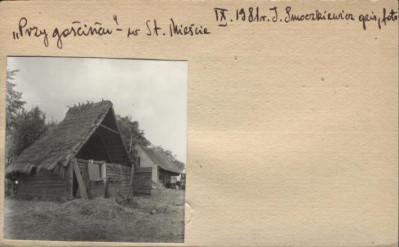 „Przy gościńcu" - w St. Mieście IX. 1981r. J. Smoczkiewicz fot.